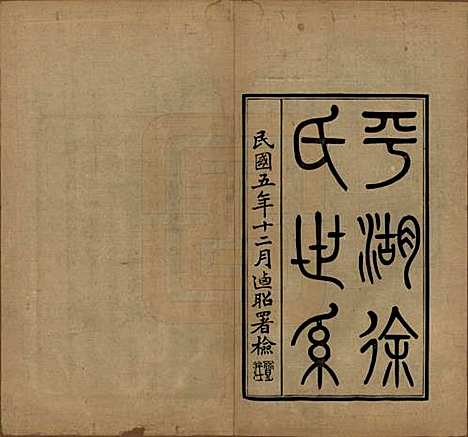 平湖徐
氏世系
民國五年十二月迪昭署檢